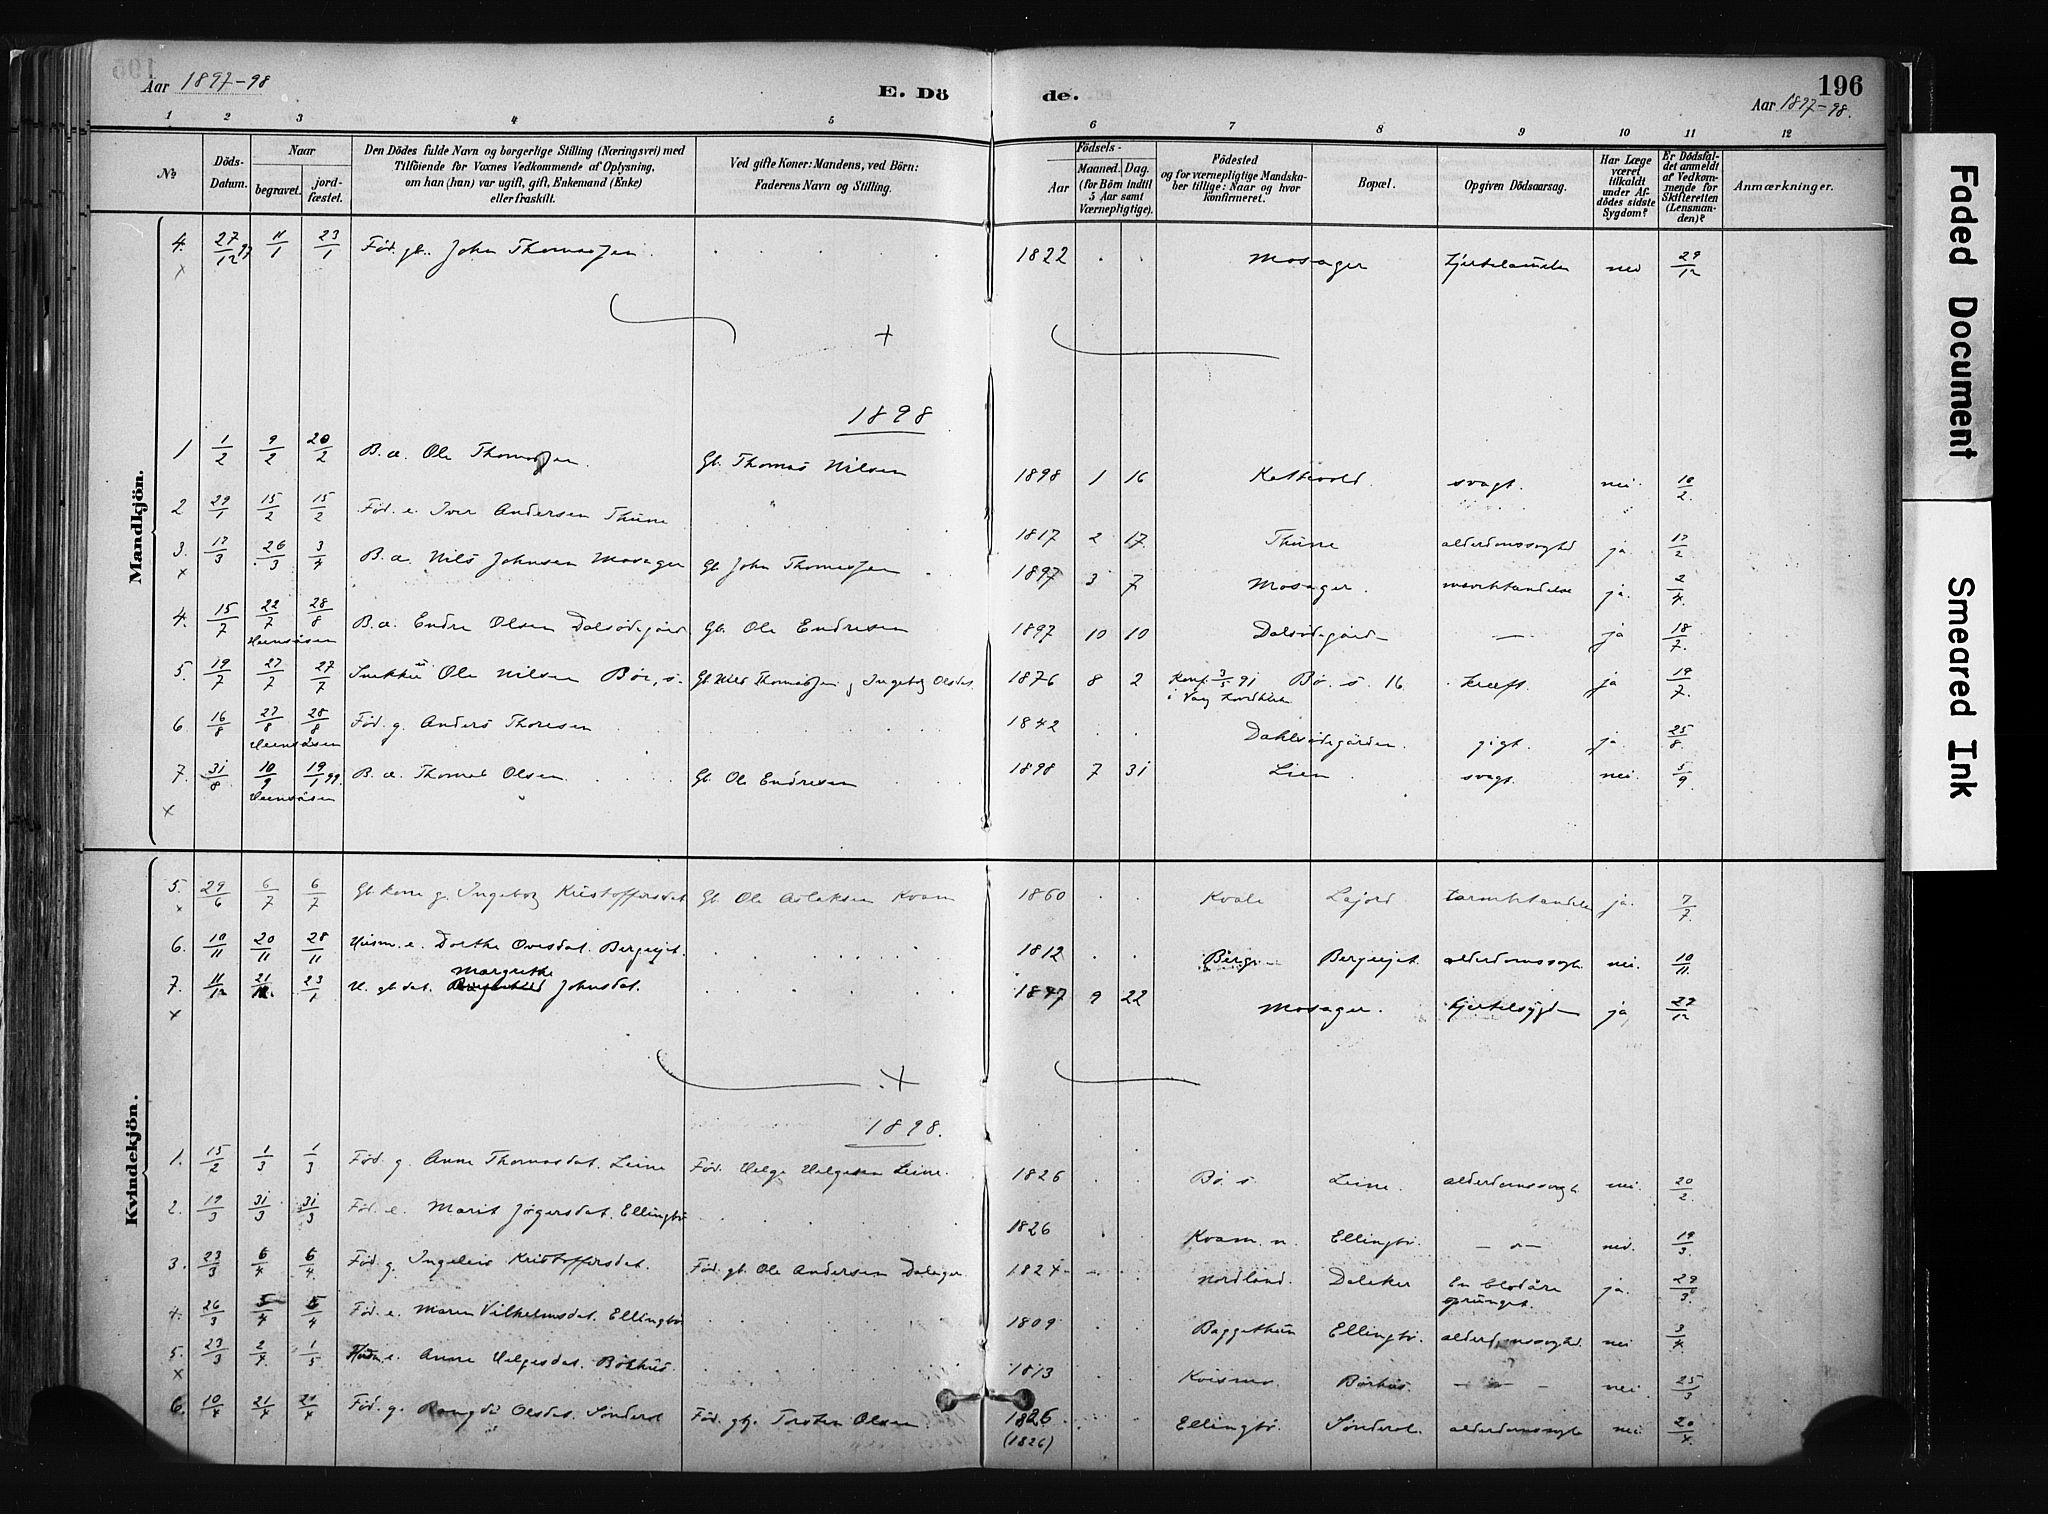 Aar 1897-98
E. Dö de.
196
Aar 1897-98.
1 2 3 4 5 6 7 8 9 10 11 12
No
Döds-Datum.
Naar
begravet.
jord-fæstet.
Den Dödes fulde Navn og borgerlige Stilling (Næringsvei) med
Tilföiende for Voxnes Vedkommende af Oplysning,
om han (hun) var ugift, gift, Enkemand (Enke)
eller fraskilt.
Ved gifte Koner: Mandens, ved Börn:
Faderens Navn og Stilling.
Födsels-
Aar
Maaned. Dag.
(for Börn indtil
5 Aar samt
Værnepligtige).
Födested
og for værnepligtige Mandska-
ber tillige: Naar og hvor
konfirmeret.
Bopæl.
Opgiven Dödsaarsag.
Har Læge
været
tilkaldt
under Af-
dödes sidste
Sygdom?
Er Dödsfal-
det anmeldt
af Vedkom-
mende for
Skifteretten
(Lensman-
den)?
Anmærkninger.
Mandkjön.
4. 27/12 97 11/1 23/1 Fød. gb. John Thomassen 1822 Mosager nei 29/12
x
+
1898
1 1/2 9/2 20/2 B. a. Ole Thomassen Gb. Thomas Nilsen 1898 1 16 Kattevold. svagt. nei. 16/2
2 29/1 15/2 15/2 Fød. e. Iver Andersen Thune 1817 2 17. Thune alderdomssvaghed ja 17/2
3. 17/3 26/3 3/4 B. a. Nils Johnsen Mosager Gb. John Thomassen 1897 3 7 Mosager. ja. 2/4.
x
4. 15/7 22/7 28/8 B. a. Endre Olsen Dalsødegård Gb. Ole Endresen 1897 10 10 Dalsødegården — ja 18/7.
Heensåsen
5. 19/7 27/7 27/7 Ole Nilsen Bø, s. Gb. Nils Thomassen og Ingeborg Olsdat. 1876 8 2 Konf. 3/5 91 Bø. s. 16 kræft. ja 19/7.
i Vang
6 16/8 27/8 28/8 Fød. g. Anders Thoresen 1842 Dahlsødegården. gigt. ja. 25/8.
Heensåsen
7. 31/8 10/9 19/1 99. B. a. Thomas Olsen Gb. Ole Endresen 1898 7 31 Lien. svagt. nei. 5/9
Heensåsen
x
Kvindekjön.
5. 29/6 6/7 6/7 Gb. kone g. Ingeborg Kristoffersdat Gb. Ole Aslaksen Kvam 1860 Kvale Lajord tarmbetændelse ja. 7/7.
x
6. 10/11 20/11 28/11 Husm. e. Dorthe Ovesdat. Bergeejet. 1812 Berge Bergeejet. alderdomssvagh. nei. 10/11
Margrethe
7. 11/12 21/12. 23/1 U. gb. dat. Johnsdat. 1897 9 22 Mosager. kjertelsygdom ja 27/12
x
+
1898.
1. 15/2 1/3 1/3 Fød. g. Anne Thomasdat. Leine Fød. Helge Helgesen Leine. 1826 Bø. s Leine. alderdomssvagh. nei. 20/2.
2. 19/3 31/3 31/3 Fød. e. Marit Jøgersdat. Ellingbø 1826 Kvam. n. Ellingbø. — " — nei. 19/3.
3. 23/3 6/4 6/4. Fød. g. Ingeleiv Kristoffersdat. Fød. gb. Ole Andersen Dalager 1824 Nordland. Daleker En blodåre ja. 29/3.
sprunget.
4. 26/3 5/4 5/4 Fød. e. Maren Vilhelmsdat. Ellingbø 1809 Baggethun Ellingbø. alderdomssvaghed. nei 3/4.
5. 23/3 2/4. 1/5 Husm. e. Anne Helgesdat. Bøkhus. 1813 Kvismo. Børhus. — " — nei. 25/3
x
6. 10/4 21/4 21/4 Fød. g. Rangdi Olsdat. Sønderol Fød. gb. Torsten Olsen 1826 Ellingbø. Sønderol. alderdomssvagh nei. 20/4.
(1826)
Faded Document
Smeared Ink